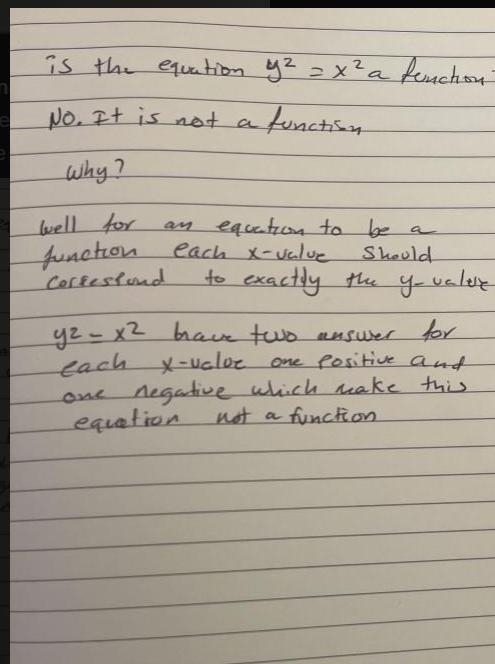 is the equation y² = x² a function
NO. It is not a function
Why?
Well for an equation to be a
function each x-value should
correspond to exactly the y-value
y² = x² have two answer for
each x-value one positive and
one negative which make this
equation not a function